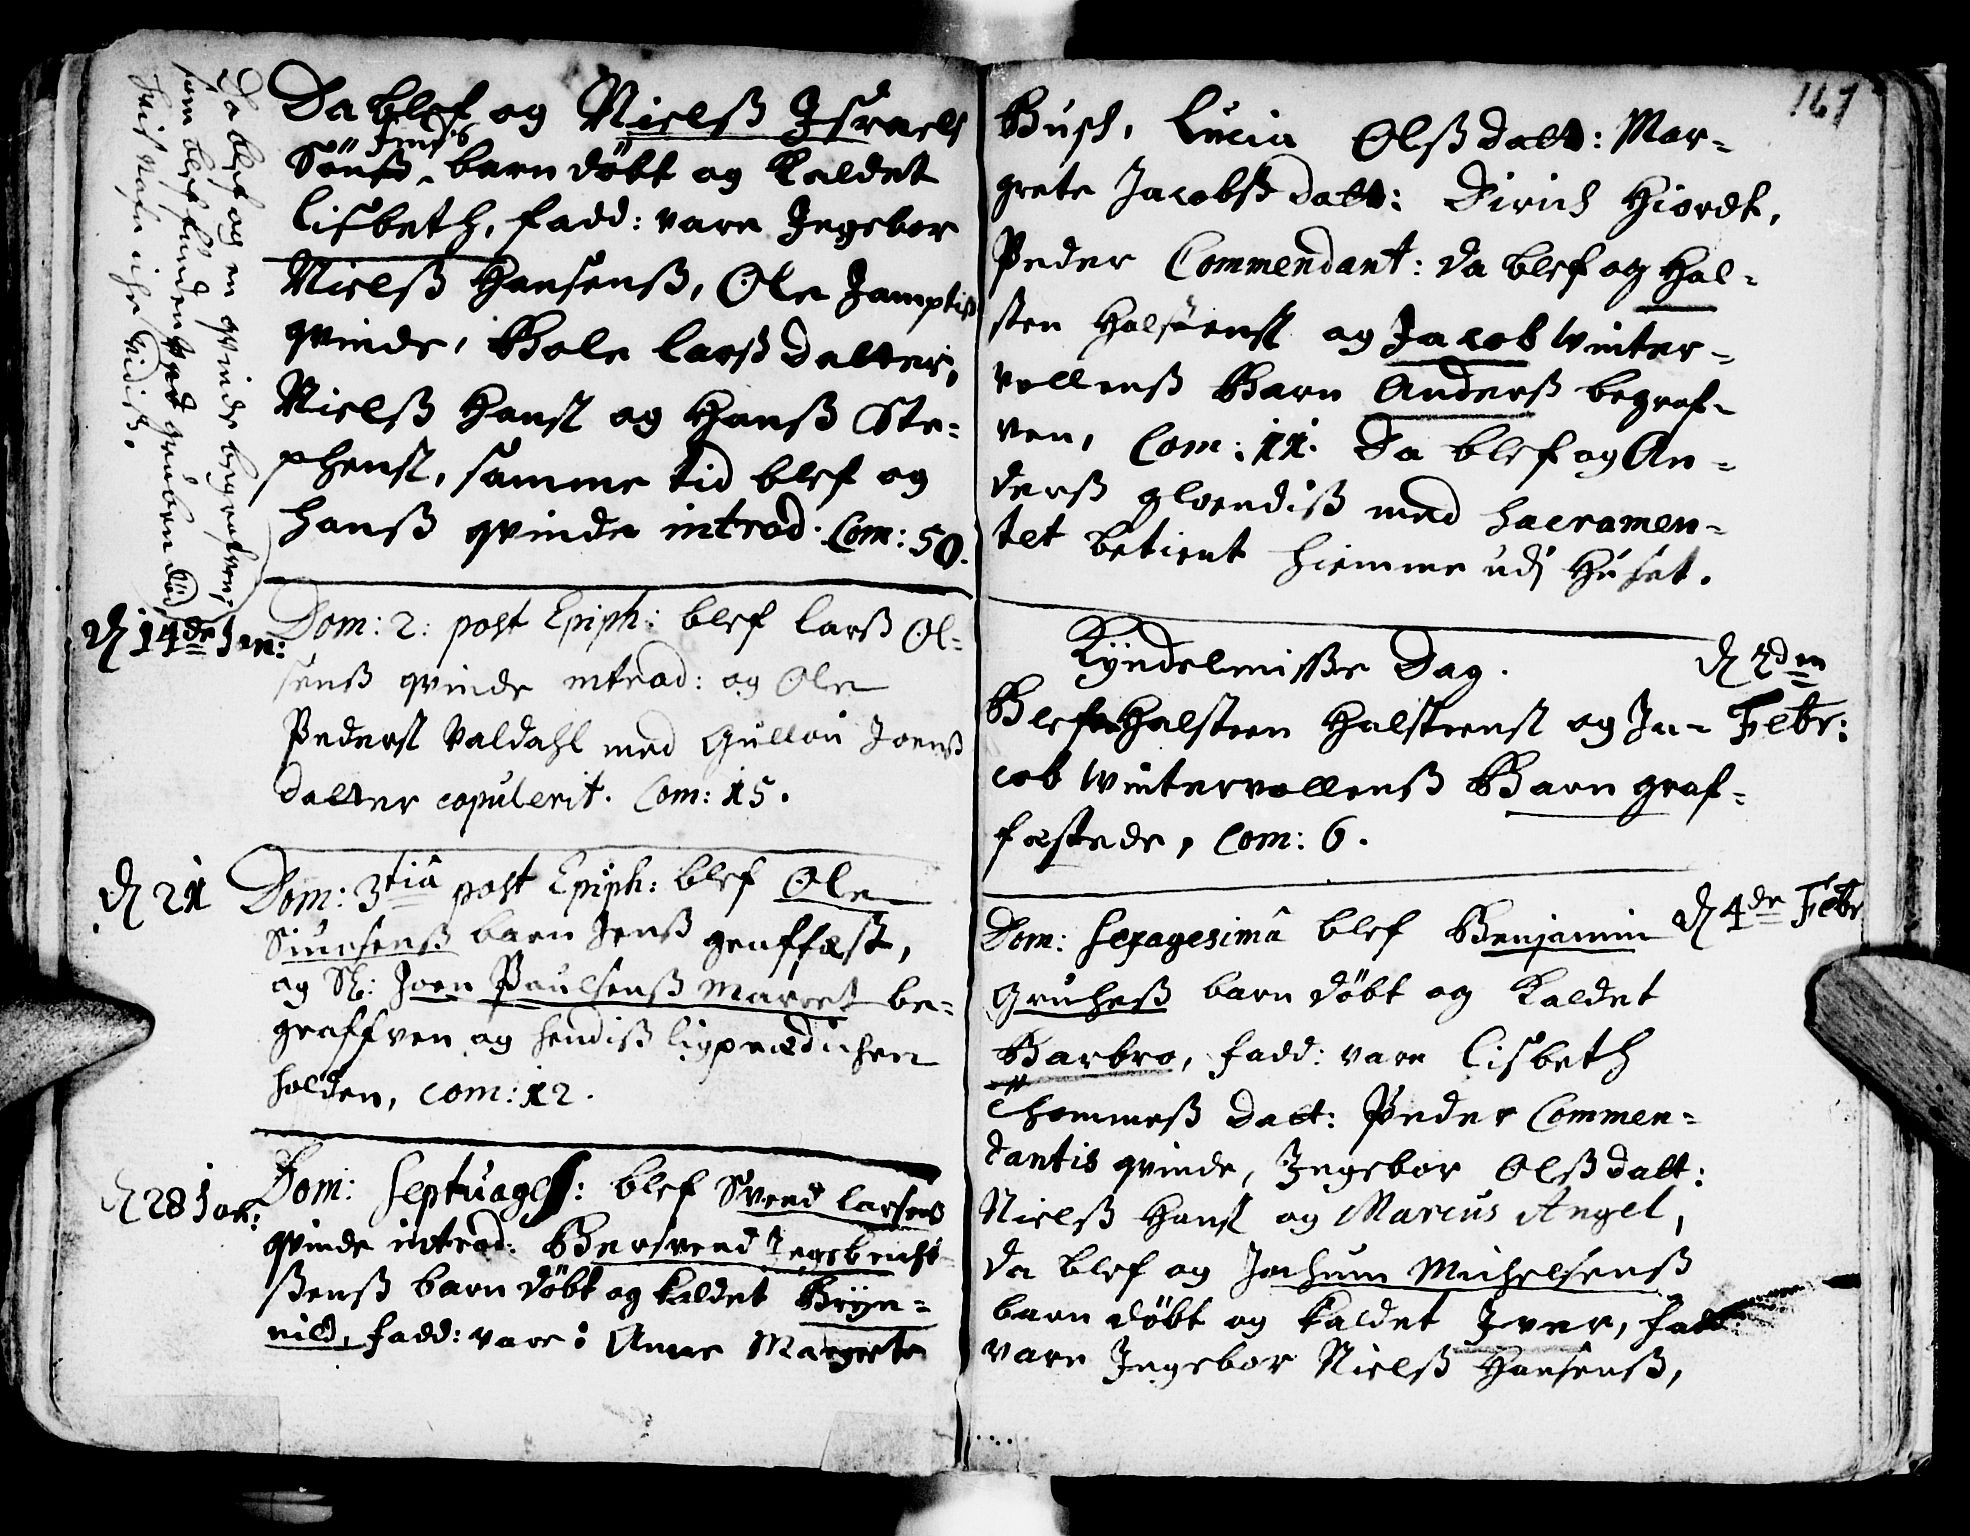 Da blef og Nielß Jsraels
Sönß barn döbt og Kaldet
Lisbeth, fadd: vare Jngebor
Nielß Hansenß, Ole Jamptis
qvinde, Bole Larß datter,
Nielß Hanß og Hanß Ste-
phenß, samme tid blef og
hanß qvinde introd: Com: 50.
Da blef og en qvinde begrafven,
som blef funden ved gruben død,
hvis nafn iche vidis.
d 14de Jan:
Dom: 2: post Epiph: blef Larß Ol-
senß qvinde introd: og Ole
Pederß Valdahl med Gulloü Joenß
datter copulerit. Com: 15.
d 21
Dom: 3tiâ post Epiph: blef Ole
Siursenß barn Jenß graffæst,
og Sl: Joen Paulsenß Marret be-
graffven og hendiß ligprædichen
holden, com: 12.
d 28 Jan:
Dom: Septuages: blef Svend Larsens
qvinde introd: Bersvend Jngebricht
ßenß barn döbt og kaldet Bryn-
nild, fadd: vare: Anne Margrete
167
Busch, Lucia Olßdatt: Mar-
grete Jacobßdatt: Dirich Hiordt,
Peder Commendant: da blef og Hal-
sten Halstenß og Jacob Winter-
vollenß Barn Anderß begraf-
ven, Com: 11. Da blef og An-
derß gloendiß med Sacramen-
tet betient hiemme udj Huset.
Kyndelmisse Dag.
d 2den
Febr:
Blef Halsteen Halsteenß og Ja-
cob Wintervollenß Barn graf-
fæstede, Com: 6.
d 4de Febr
Dom: Sexagesimâ blef Benjamin
Gruheß barn döbt og Kaldet
Barbro, fadd: vare Lisbeth
Thommeß datt: Peder Commen-
dantis qvinde, Jngebor Olßdatt:
Nielß Hanß og Marcus Angel,
da blef og Jochum Michelsenß
barn döbt og kaldet Jver, fadd:
vare Jngebor Nielß Hansenß,